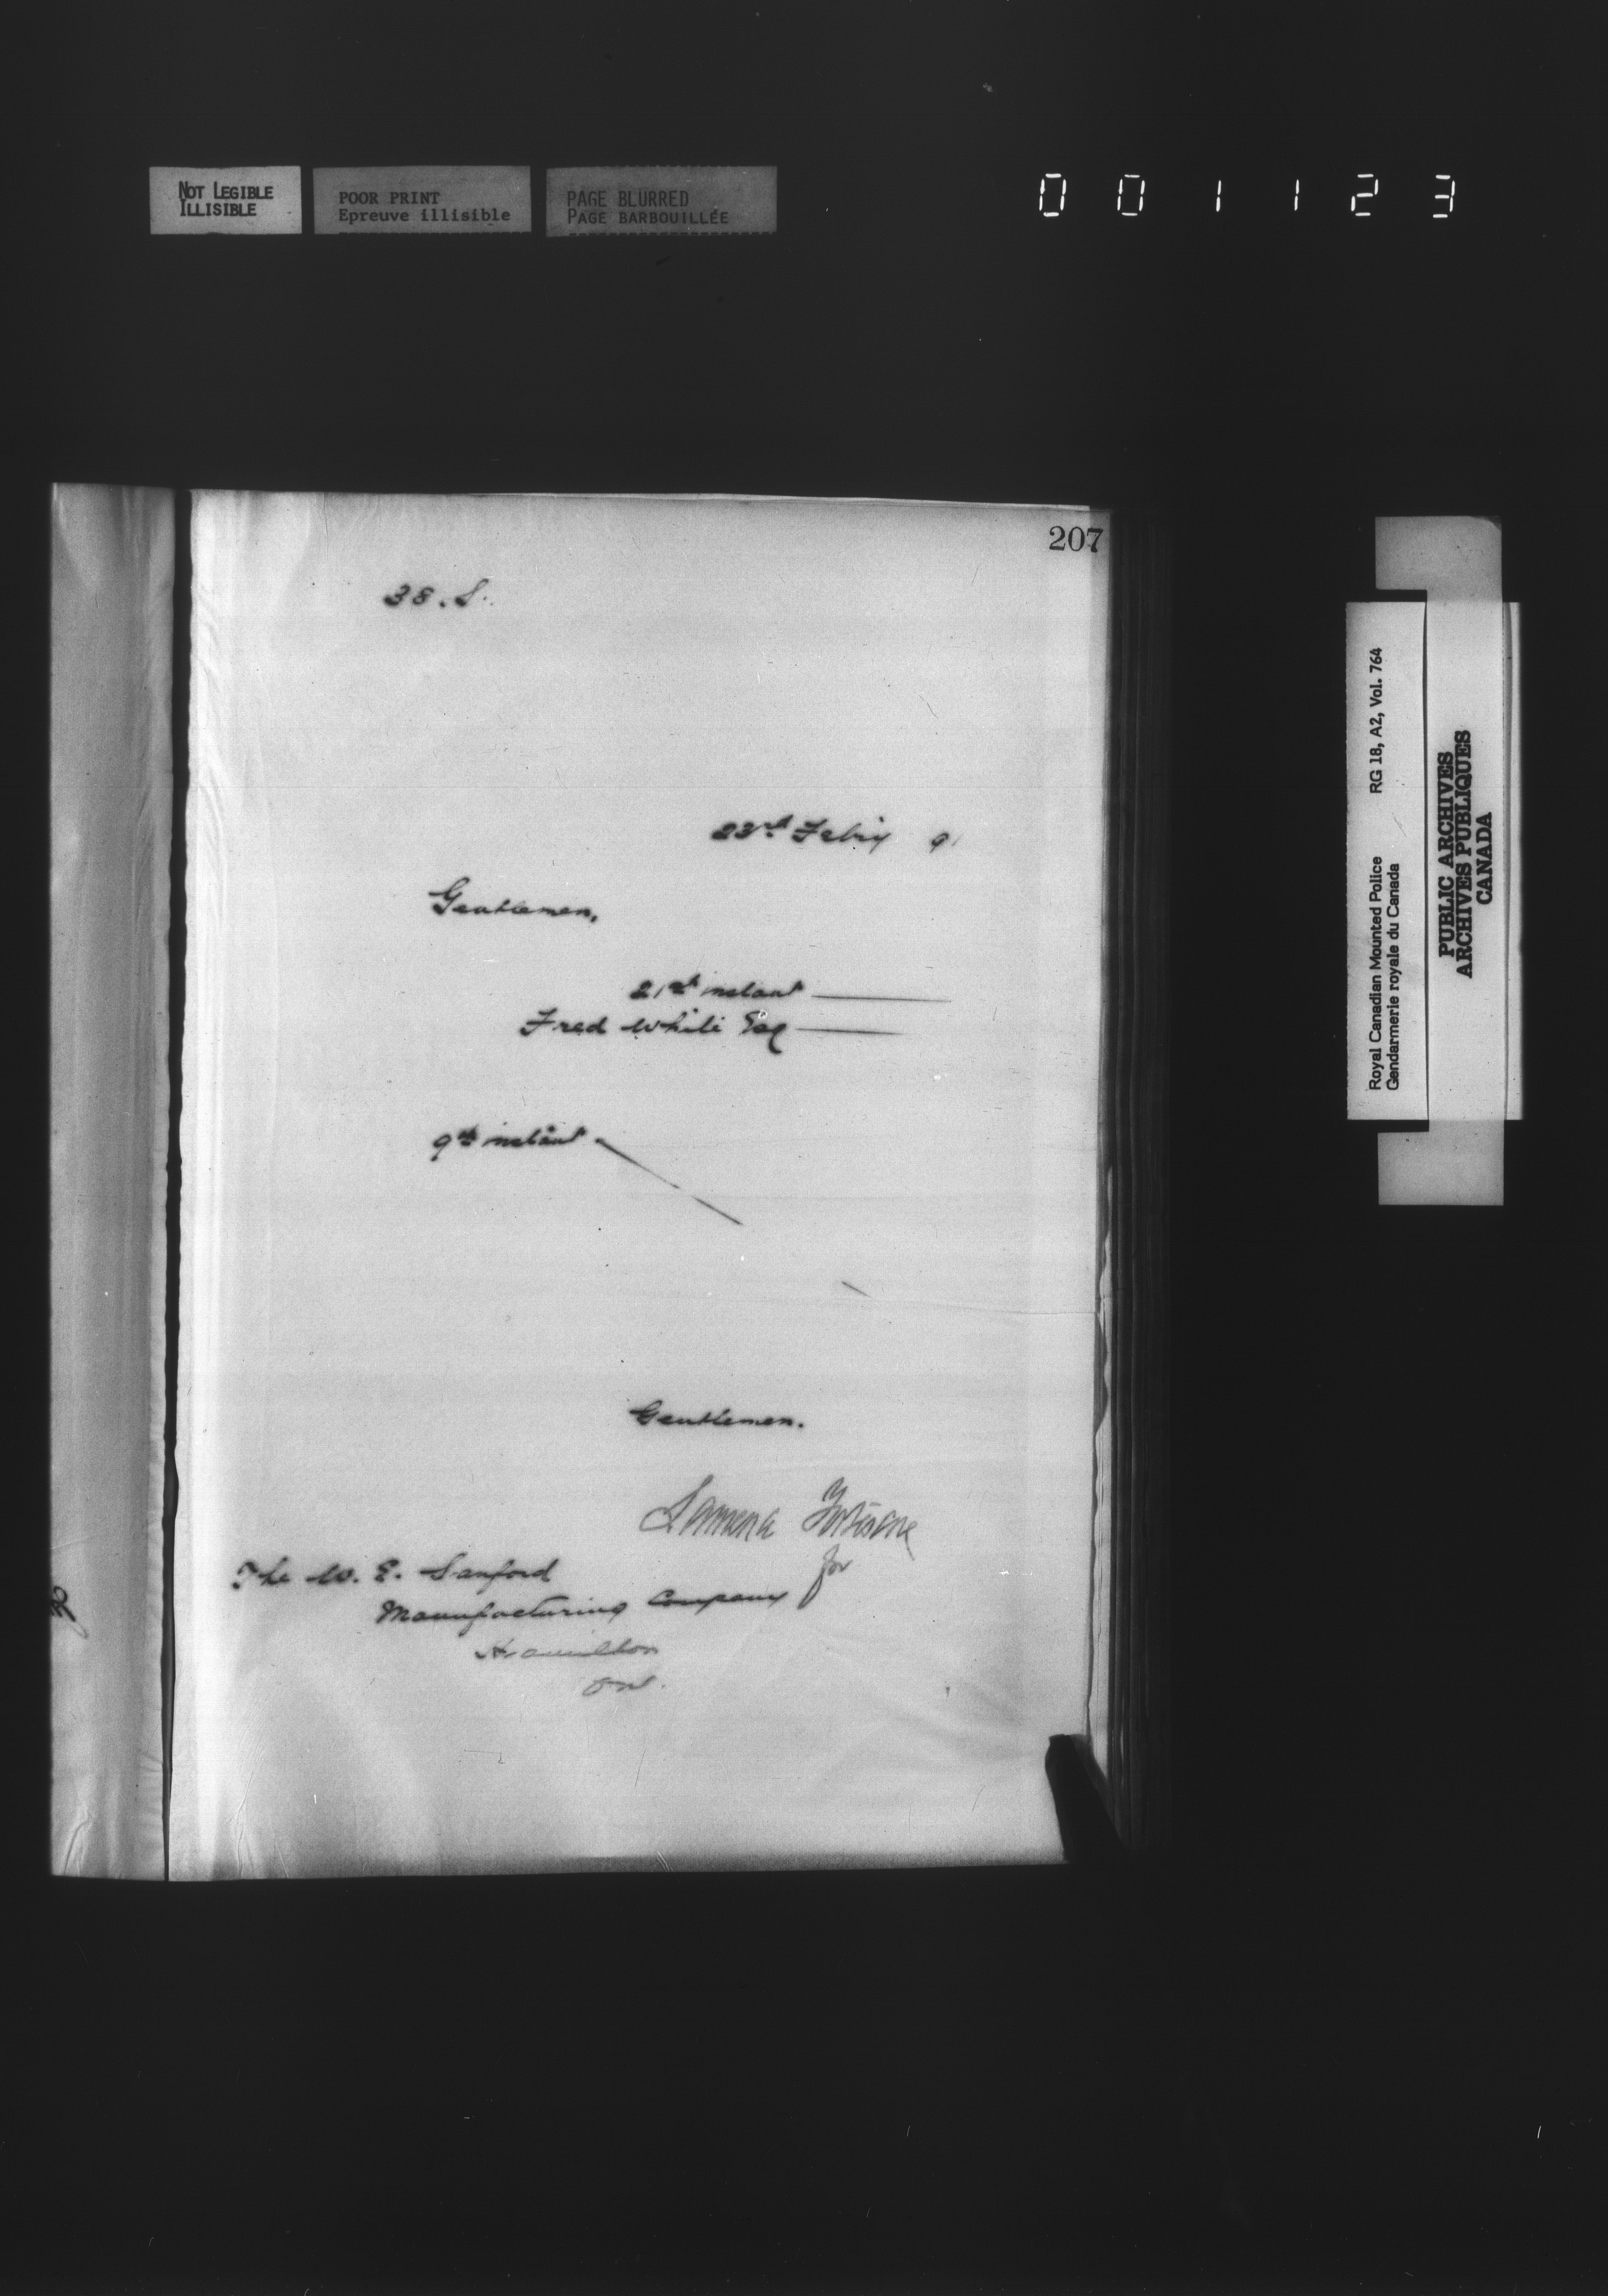 NOT LEGIBLE
ILLISIBLE
POOR PRINT
Epreuve illisible
PAGE BLURRED
PAGE BARBOUILLÉE
001123
207
38. S.
23rd Febry 91
Gentlemen,
21st instant
Fred White Esq
9th instant
Gentlemen.
for
The W. E. Sanford
Manufacturing Company
Hamilton
Ont.
Royal Canadian Mounted Police RG 18, A2, Vol. 764
Gendarmerie royale du Canada
PUBLIC ARCHIVES
ARCHIVES PUBLIQUES
CANADA